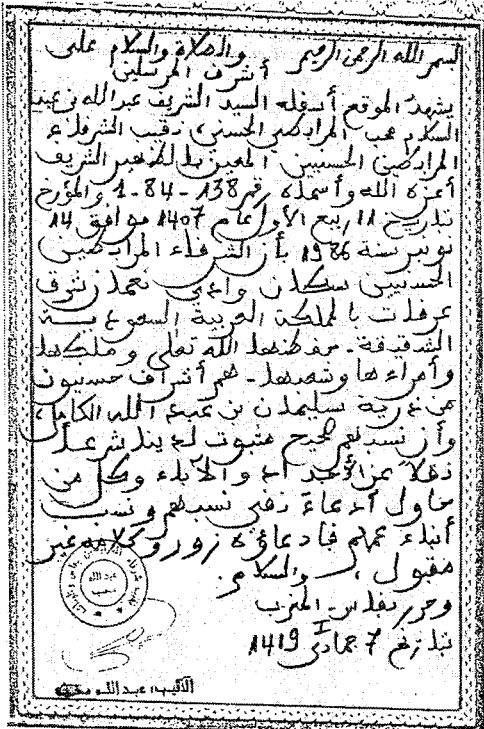 بسم الله الرحمن الرحيم والصلاة والسلام على
أشرف المرسلين
يشهد الموقع أسفله السيد الشريف عبد الله بن عبد
السلام محب المراكشي الحسني، نقيب الشرفاء
الحسنيين المعين بالظهير الشريف
أعزه الله وأسماه رقم 138-84-1 والمؤرخ
بتاريخ 11 ربيع الأول عام 1407 موافق 14
نونبر سنة 1986 بأن الشرفاء
الحسنيين سكان وادي نعمان شرق
عرفات بالمملكة العربية السعودية
الشقيقة - حفظها الله تعالى وملكها
وأمراءها وشعبها - هم أشراف حسنيون
من ذرية سليمان بن عبد الله الكامل،
وأن نسبهم صحيح مثبوت لدينا شرعا
نقلا عن الأجداد والآباء وكل من
حاول ادعاء نفي نسبهم ونسب
أبناء عمهم فادعاؤه زور وكلامه غير
مقبول، والسلام.
وحرر بفاس - المغرب
بتاريخ 7 جمادى I 1419
عبد الله